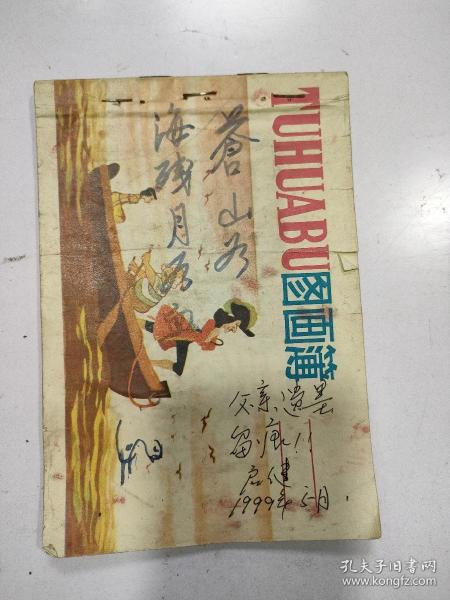 TUHUABU图画簿
蒼山如
海残月
父亲遗墨
留痕!!
1999年5月
孔夫子旧书网
www.kongfz.com